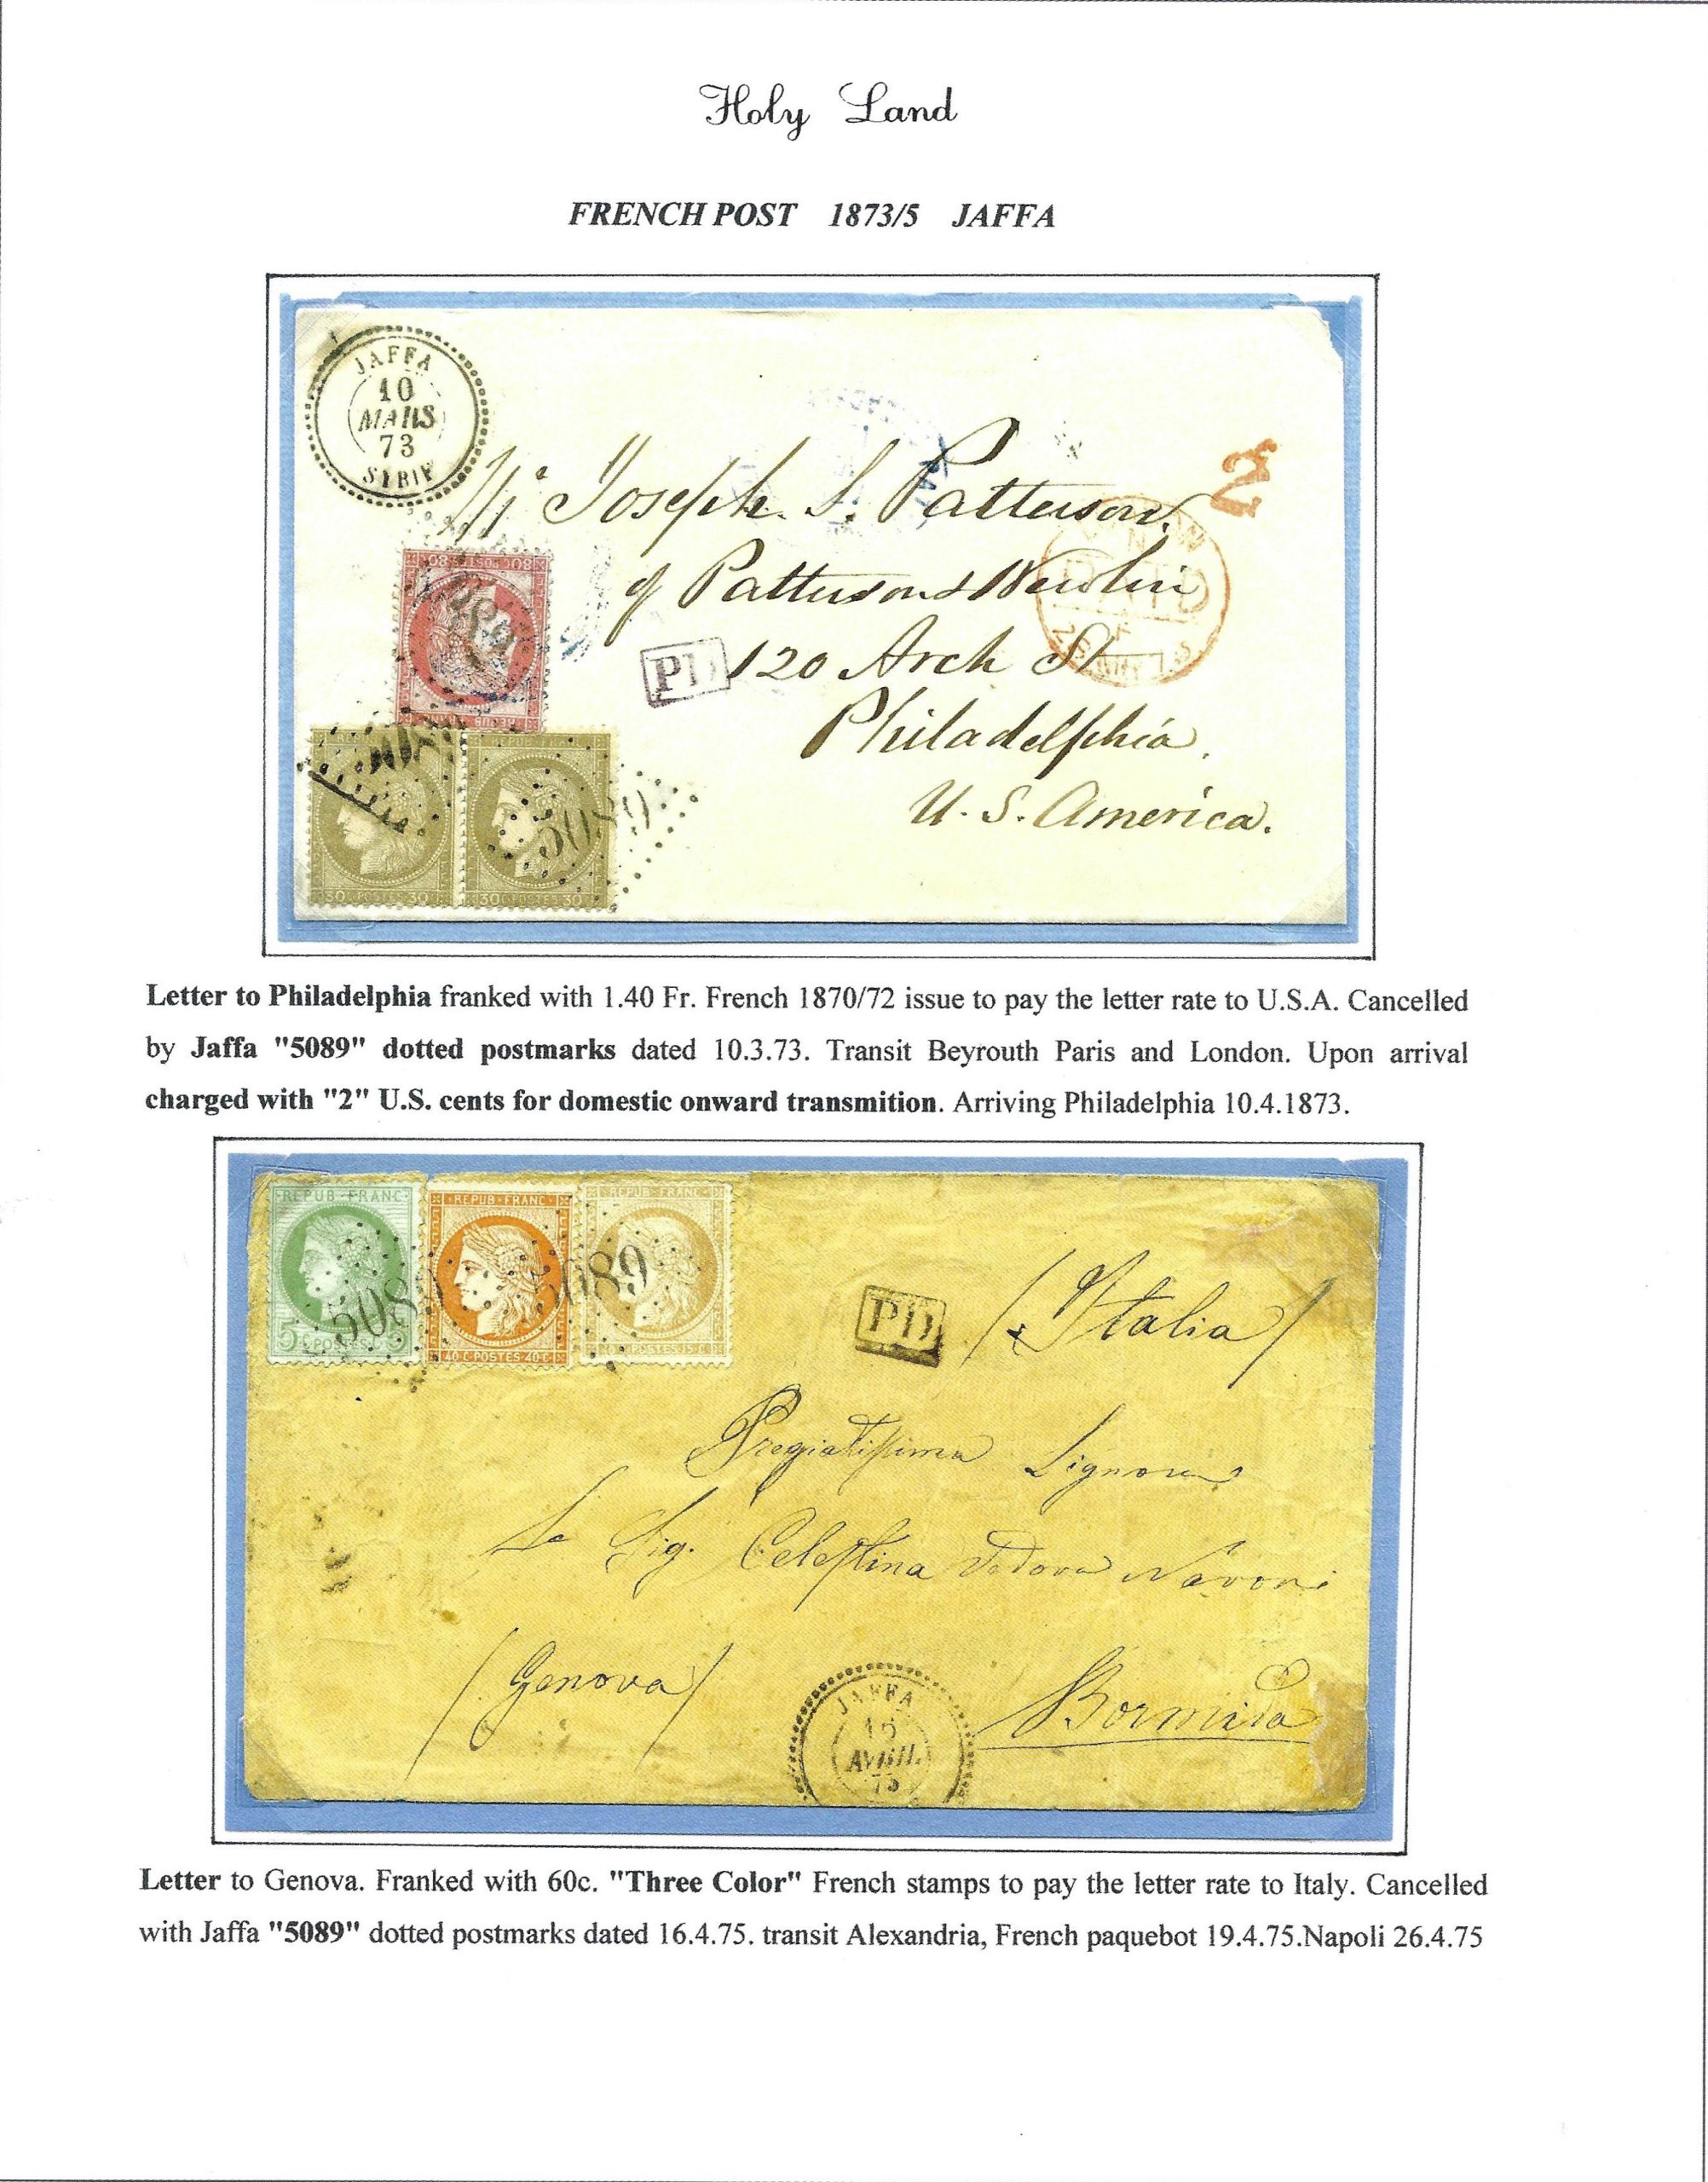 Holy Land
FRENCH POST 1873/5 JAFFA
JAFFA
10
MARS
73
SYRIE
2
Joseph. S. Patterson.
of Patterson & Newlin
PD
120 Arch St
Philadelphia.
U. S. America.
80 C
5089
30 C POSTES 30
30 C POSTES 30
5089
Letter to Philadelphia franked with 1.40 Fr. French 1870/72 issue to pay the letter rate to U.S.A. Cancelled
by Jaffa "5089" dotted postmarks dated 10.3.73. Transit Beyrouth Paris and London. Upon arrival
charged with "2" U.S. cents for domestic onward transmition. Arriving Philadelphia 10.4.1873.
REPUB FRANC
REPUB FRANC
REPUB FRANC
5089
5089
5 C POSTES 5
40 C POSTES 40 C
POSTES 15 C
PD
(Italia)
Pregiatissima Signora
La Sig. Celestina Vedova Navoni
(Genova)
Bormida
JAFFA
16
AVRIL
75
Letter to Genova. Franked with 60c. "Three Color" French stamps to pay the letter rate to Italy. Cancelled
with Jaffa "5089" dotted postmarks dated 16.4.75. transit Alexandria, French paquebot 19.4.75.Napoli 26.4.75